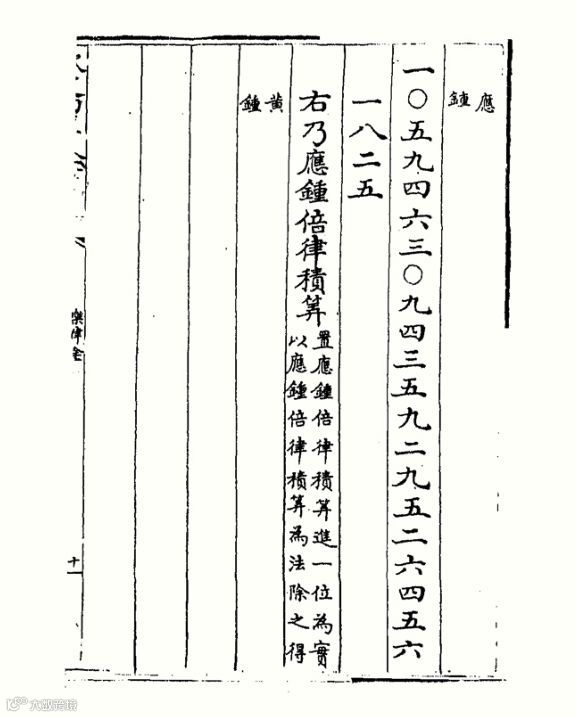 應鍾
一〇五九四六三〇九四三五九二九五二六四五六
一八二五
右乃應鍾倍律積算
置應鍾倍律積算進一位為實
以應鍾倍律積算為法除之得
黃鍾
樂律全
十
大数跨境